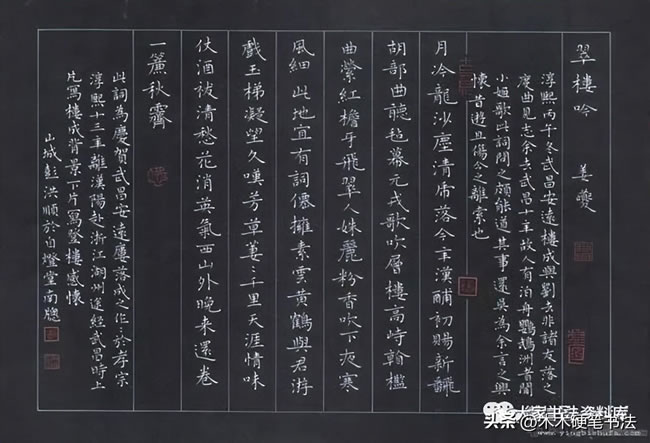 翠樓吟 姜夔
淳熙丙午冬武昌安遠樓成與劉去非諸友落之
度曲見志余去武昌十年故人有泊舟鸚鵡洲者聞
小姬歌此詞問之頗能道其事還吳為余言之興
懷昔遊且傷今之離索也
月冷龍沙塵清虎落今年漢酺初賜新翻
胡部曲聽氈幕元戎歌吹層樓高峙檻
曲縈紅檐牙飛翠人姝麗粉香吹下夜寒
風細此地宜有詞僊擁素雲黃鶴與君游
戲玉梯凝望久嘆芳草萋〻千里天涯情味
仗酒祓清愁花消英氣西山外晚來還卷
一簾秋霽
此詞為慶賀武昌安遠樓落成之作〻於孝宗
淳熙十三年離漢陽赴浙江湖州途經武昌時上
片寫樓成背景下片寫登樓感懷
山城彭洪順於白燈堂南牕
书法资料库
头条@木木硬笔书法
www.yingbishufa.com